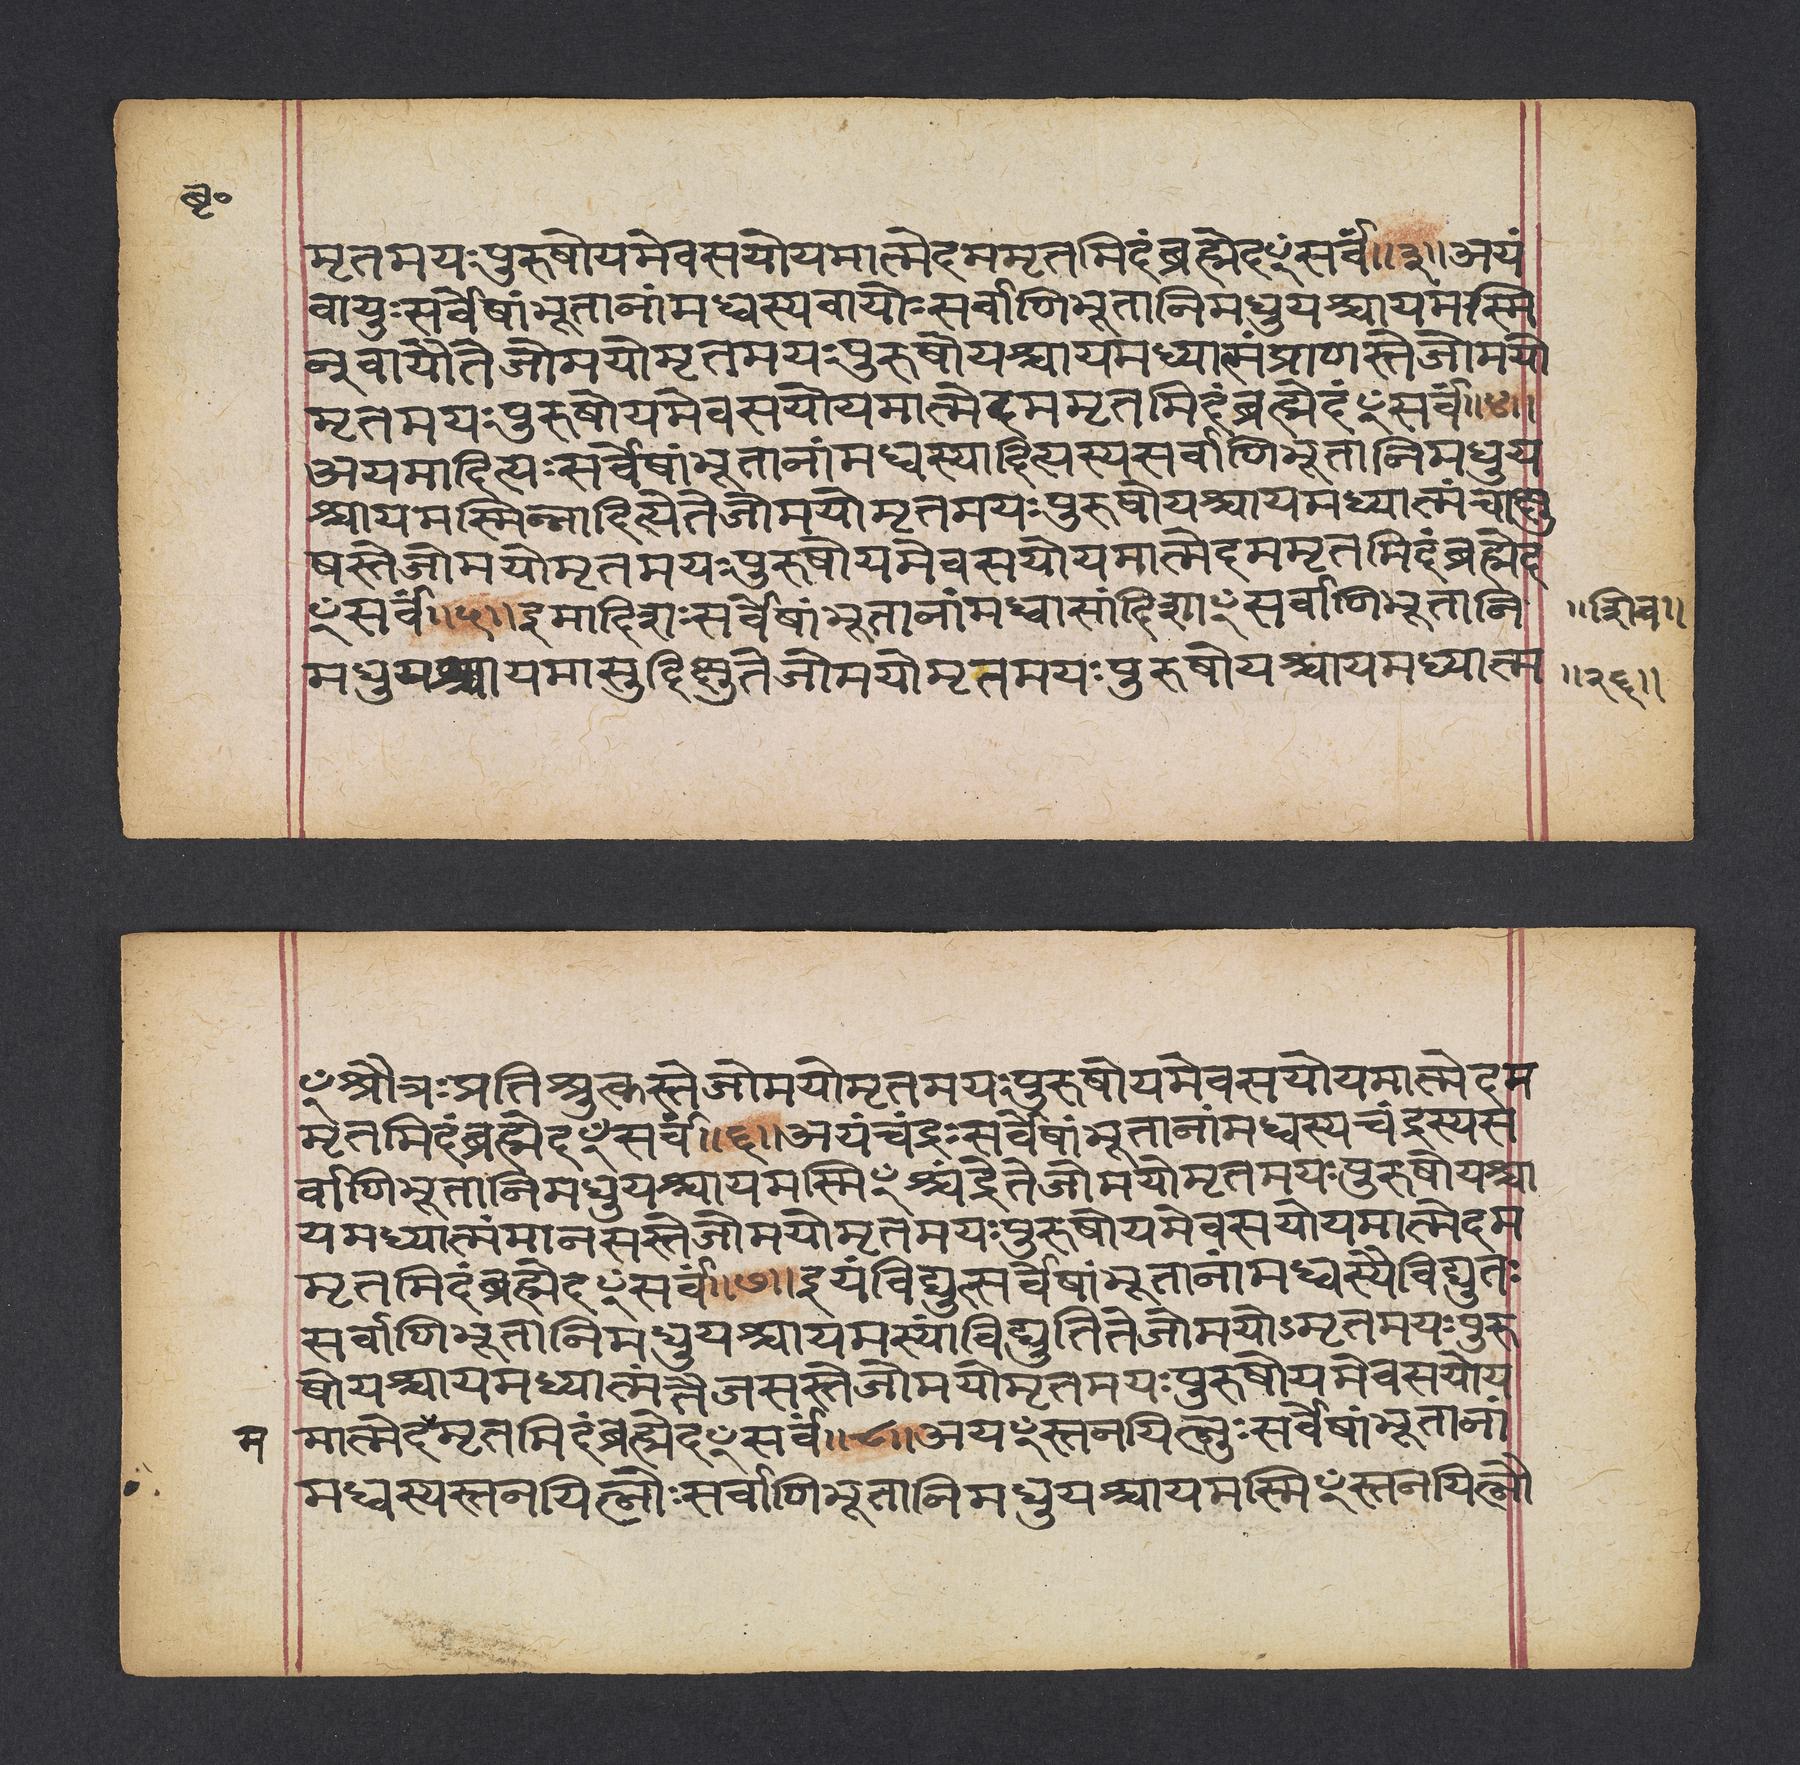 बृ॰
मृतमयःपुरुषोयमेवसयोयमात्मेदममृतमिदंब्रह्मेदꣳसर्वं॥३॥अयं
वायुःसर्वेषांभूतानांमध्वस्यवायोःसर्वाणिभूतानिमधुयश्चायमस्मि
न्वायौतेजोमयोमृतमयःपुरुषोयश्चायमध्यात्मंप्राणस्तेजोमयो
मृतमयःपुरुषोयमेवसयोयमात्मेदममृतमिदंब्रह्मेदंꣳसर्वं॥४॥
अयमादित्यःसर्वेषांभूतानांमध्वस्यादित्यस्यसर्वाणिभूतानिमधुय
श्चायमस्मिन्नादित्येतेजोमयोमृतमयःपुरुषोयश्चायमध्यात्मंचाक्षु
षस्तेजोमयोमृतमयःपुरुषोयमेवसयोयमात्मेदममृतमिदंब्रह्मेद
ꣳसर्वं॥५॥इमादिशःसर्वेषांभूतानांमध्वासांदिशाꣳसर्वाणिभूतानि
॥शिव॥
मधुयश्चायमासुदिक्षुतेजोमयोमृतमयःपुरुषोयश्चायमध्यात्म
॥२६॥
ꣳश्रौत्रःप्रतिश्रुत्कस्तेजोमयोमृतमयःपुरुषोयमेवसयोयमात्मेदम
मृतमिदंब्रह्मेदꣳसर्वं॥६॥अयंचंद्रःसर्वेषांभूतानांमध्वस्यचंद्रस्यस
र्वाणिभूतानिमधुयश्चायमस्मिꣳश्चंद्रेतेजोमयोमृतमयःपुरुषोयश्चा
यमध्यात्मंमानसस्तेजोमयोमृतमयःपुरुषोयमेवसयोयमात्मेदम
मृतमिदंब्रह्मेदꣳसर्वं॥७॥इयंविद्युत्सर्वेषांभूतानांमध्वस्यैविद्युतः
सर्वाणिभूतानिमधुयश्चायमस्यांविद्युतितेजोमयोऽमृतमयःपुरु
षोयश्चायमध्यात्मंतैजसस्तेजोमयोमृतमयःपुरुषोयमेवसयोय
म
मात्मेदमृतमिदंब्रह्मेदꣳसर्वं॥८॥अयꣳस्तनयित्नुःसर्वेषांभूतानां
मध्वस्यस्तनयित्नोःसर्वाणिभूतानिमधुयश्चायमस्मिꣳस्तनयित्नौ